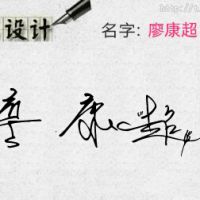 设计
名字: 廖康超
廖 康超